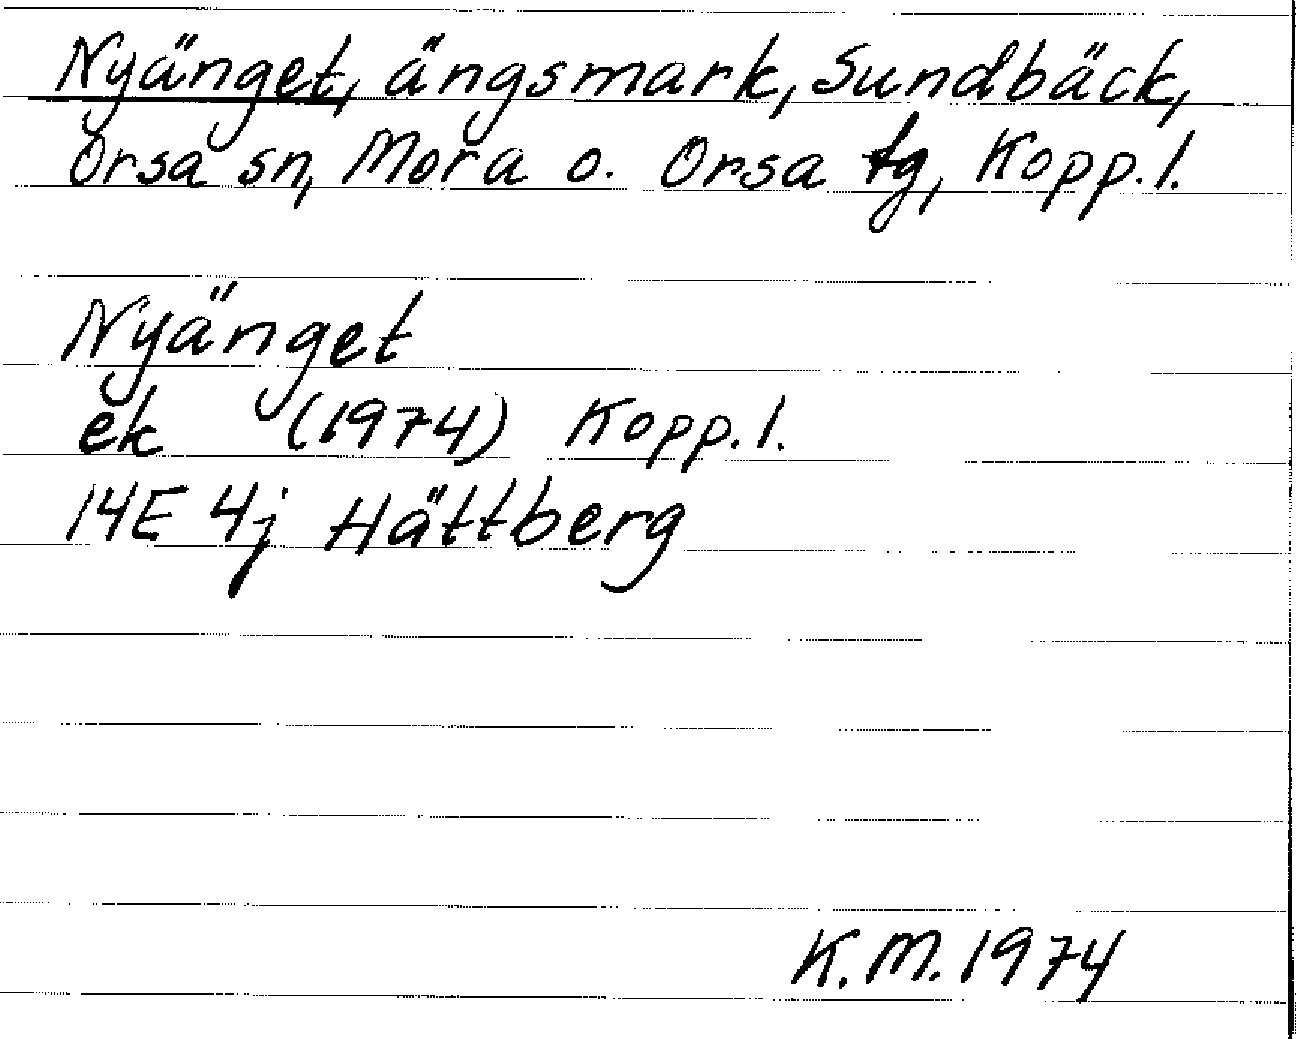 Nyänget, ängsmark, Sundbäck,
Orsa sn, Mora o. Orsa tg, Kopp. l.
Nyänget
ek (1974) Kopp. l.
14E 4j Hättberg
K.M. 1974